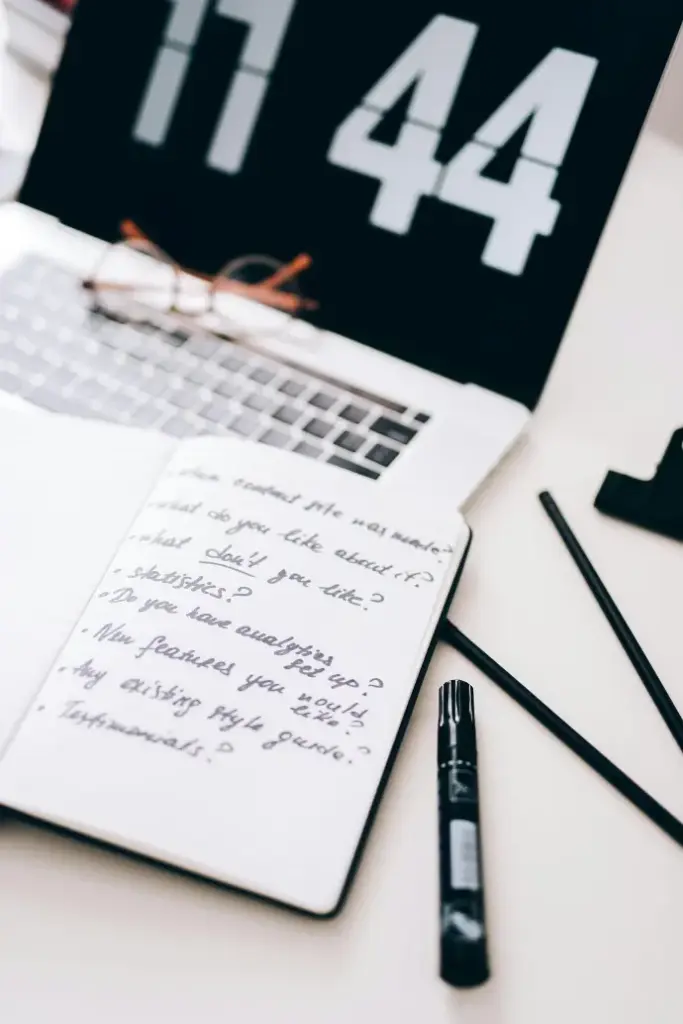 11 44
• when content site was made?
• what do you like about it?
• what don't you like?
• statistics?
• Do you have analytics
set up?
• New features you would
like?
• Any existing style guide?
• Testimonials?